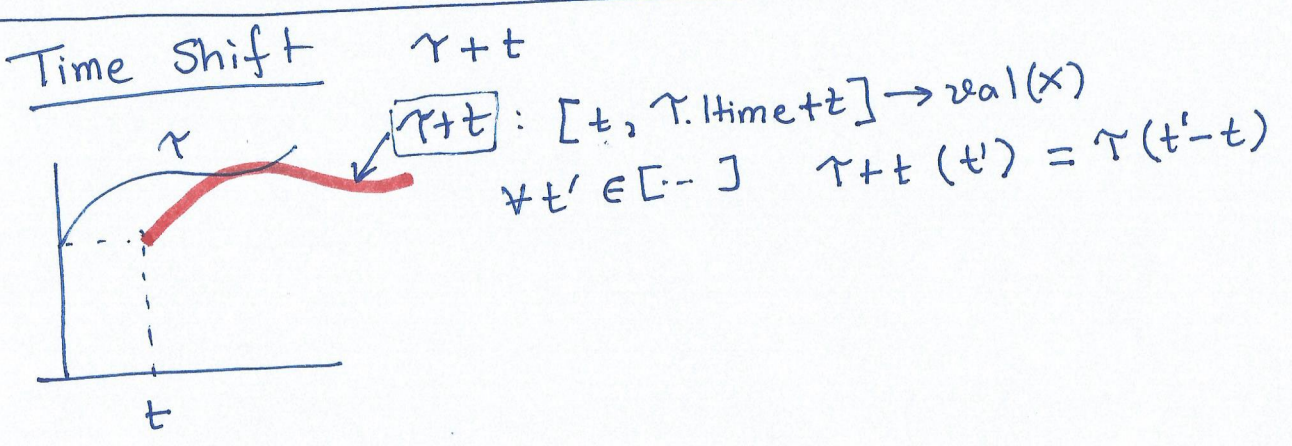 Time Shift τ+t
τ+t : [t, τ.ltime+t] → val(X)
∀t' ∈ [.. ] τ+t (t') = τ(t'-t)
τ
t